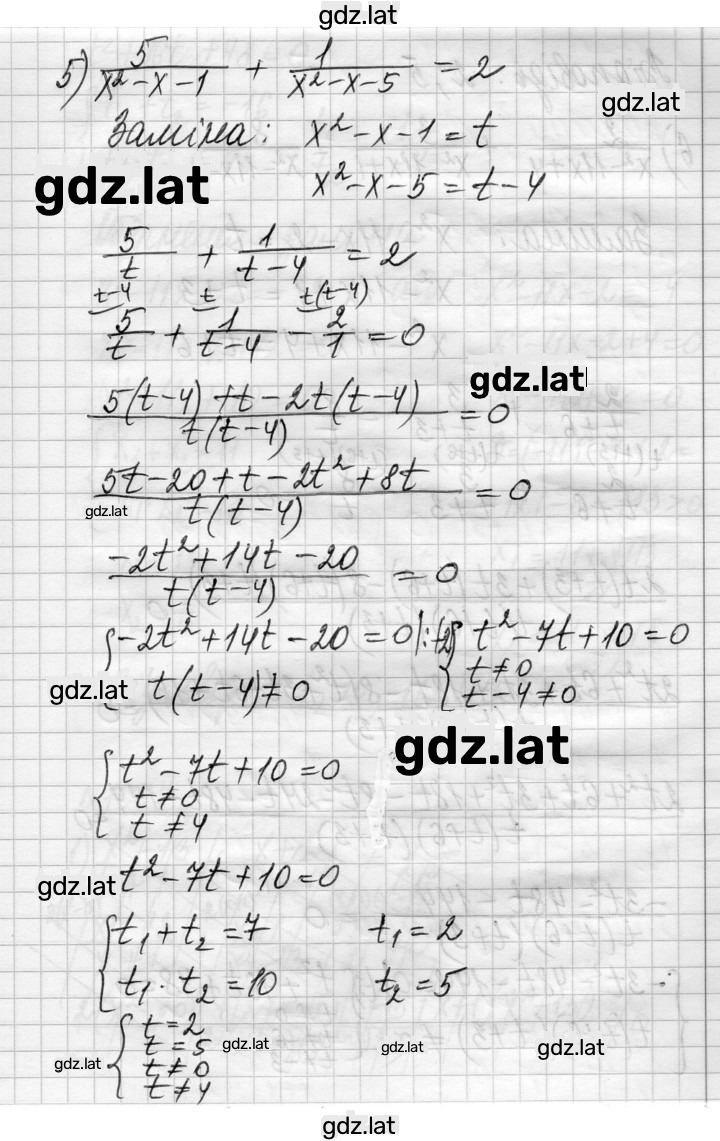 gdz.lat
5) 5/(x²-x-1) + 1/(x²-x-5) = 2
gdz.lat
Заміна: x²-x-1=t
gdz.lat
x²-x-5=t-4
5/t + 1/(t-4) = 2
t-4 t t(t-4)
5/t + 1/(t-4) - 2/1 = 0
gdz.lat
(5(t-4)+t-2t(t-4))/(t(t-4)) = 0
(5t-20+t-2t²+8t)/(t(t-4)) = 0
gdz.lat
(-2t²+14t-20)/(t(t-4)) = 0
{-2t²+14t-20=0 |:(-2) { t²-7t+10=0
gdz.lat t(t-4)≠0 t≠0
t-4≠0
gdz.lat
{ t²-7t+10=0
t≠0
t≠4
gdz.lat t²-7t+10=0
{ t₁+t₂=7 t₁=2
t₁·t₂=10 t₂=5
{ t=2
t=5 gdz.lat gdz.lat gdz.lat
gdz.lat t≠0
t≠4
gdz.lat